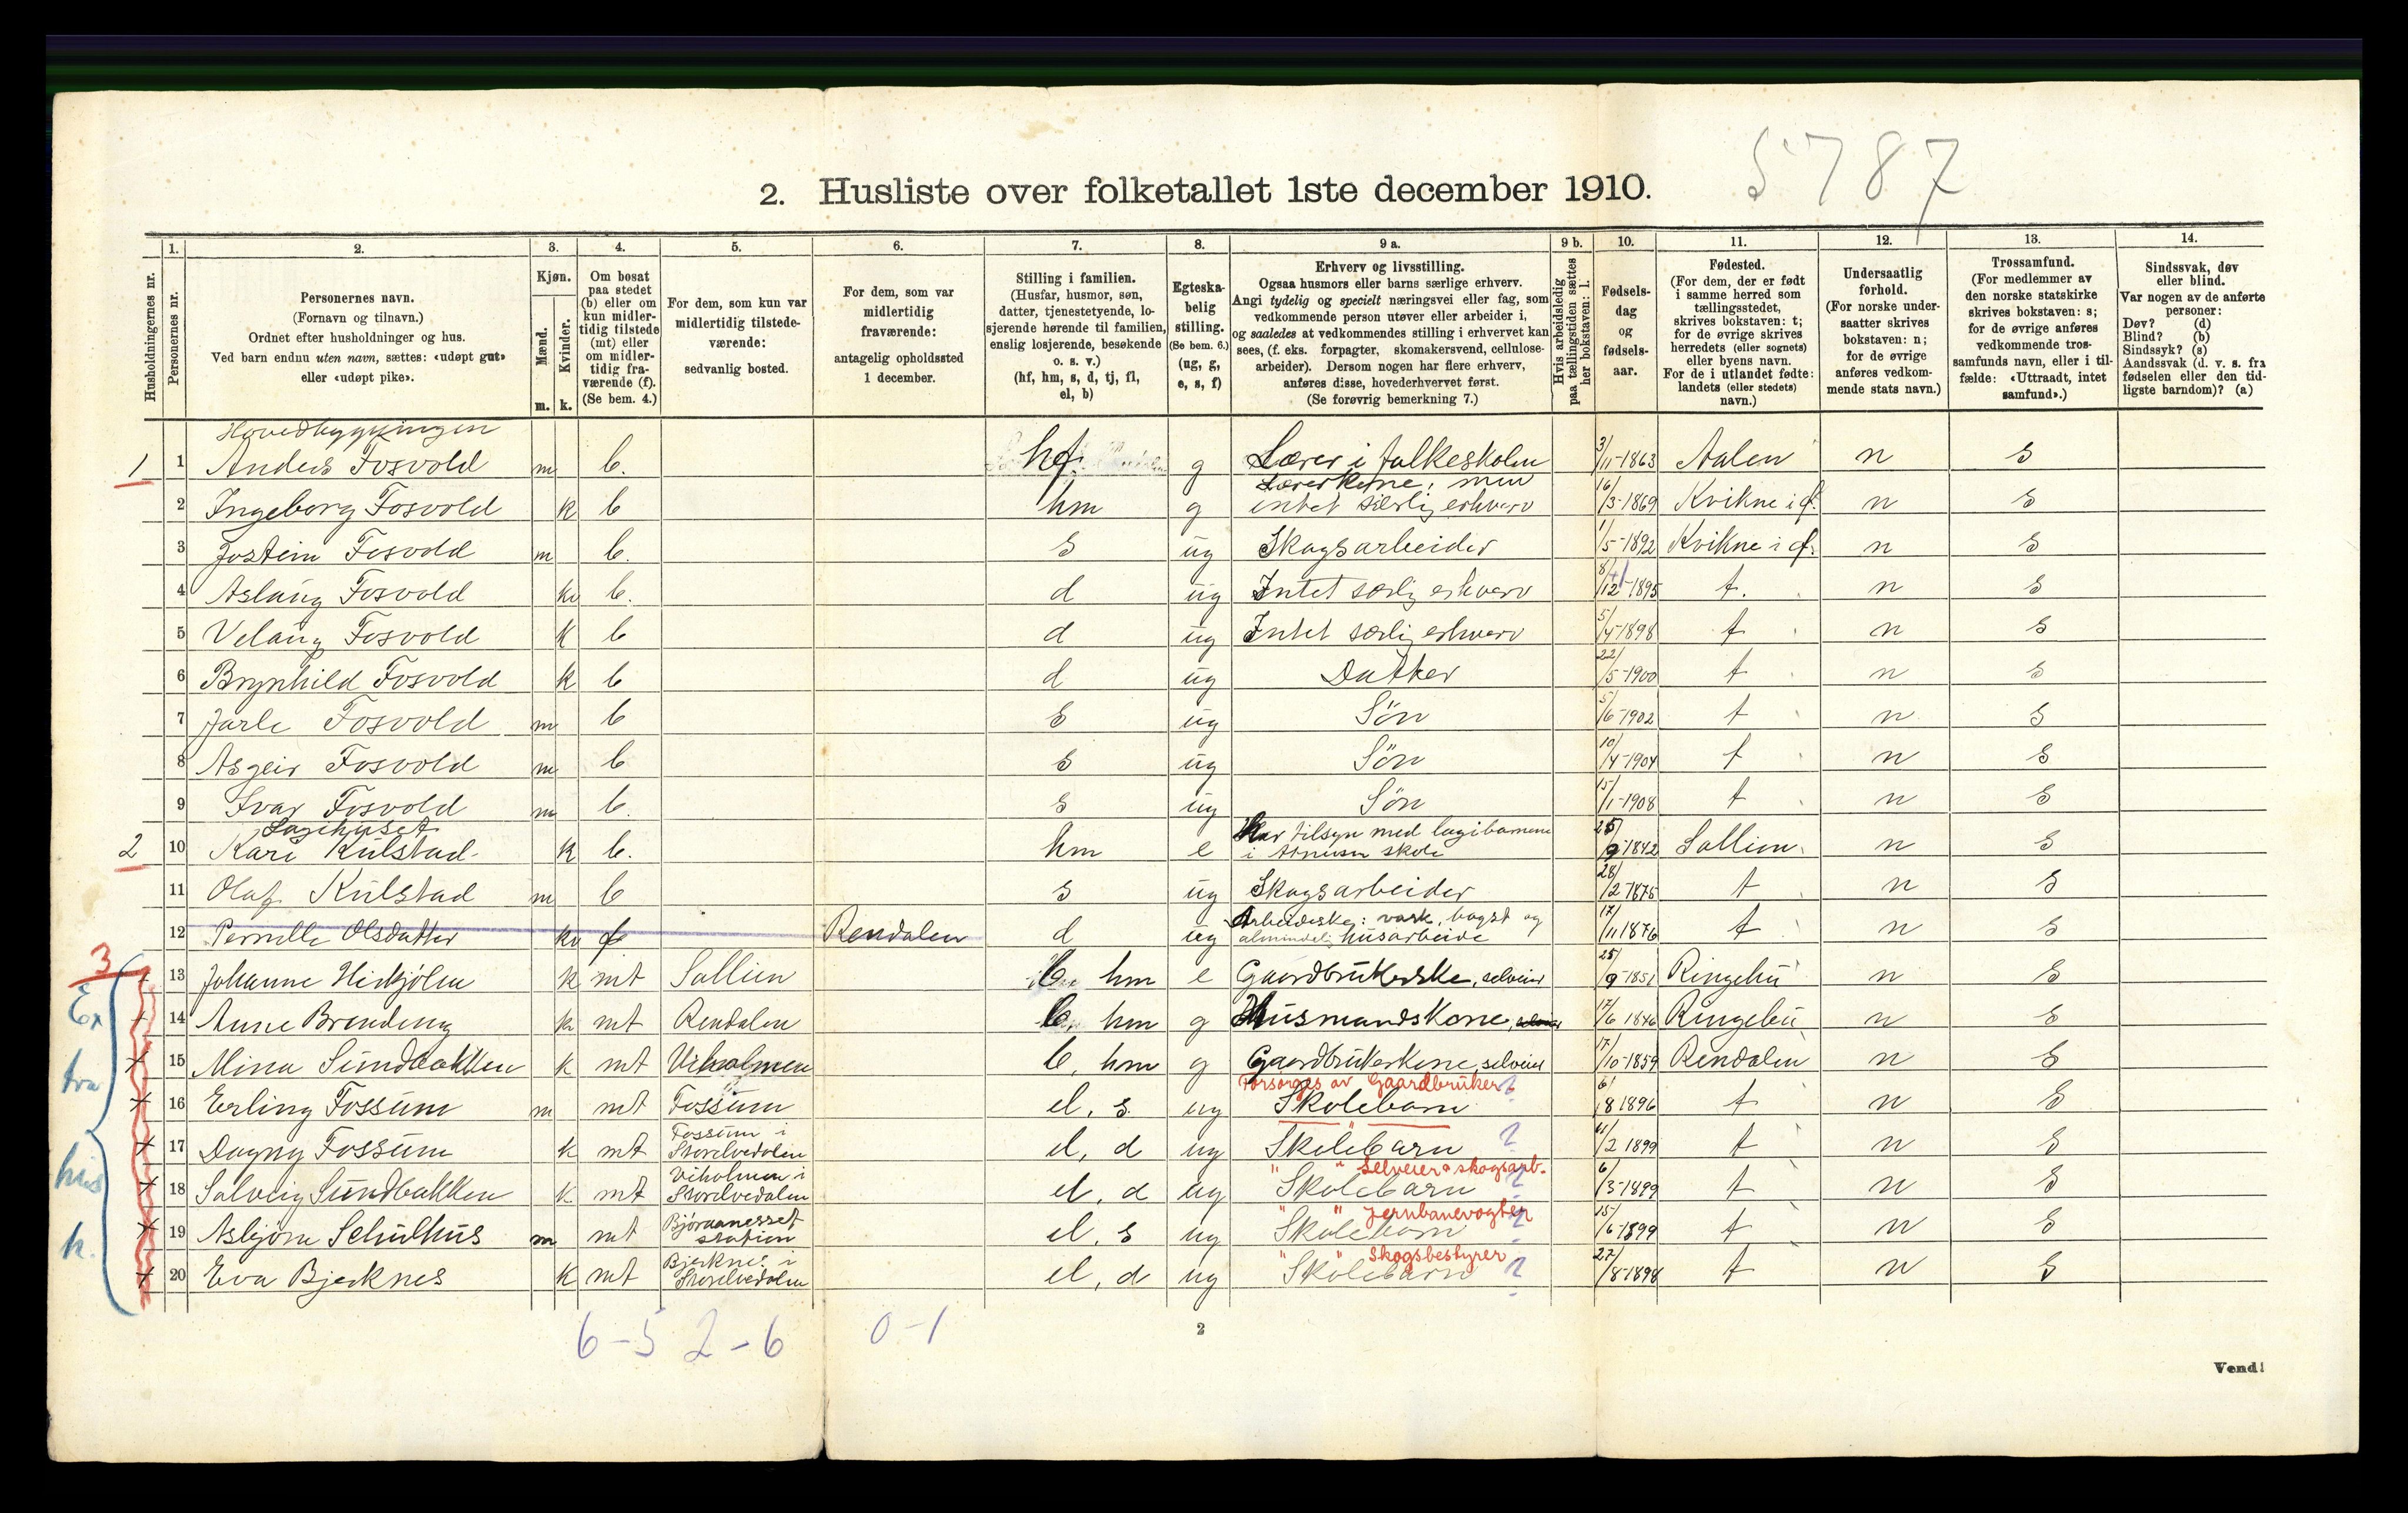 5787
2. Husliste over folketallet 1ste december 1910.
Husholdningernes nr.
1. Personernes nr.
2. Personernes navn. (Fornavn og tilnavn.) Ordnet efter husholdninger og hus. Ved barn endnu uten navn, sættes: «udøpt gut» eller «udøpt pike».
3. Kjøn. Mænd. m. Kvinder. k.
4. Om bosat paa stedet (b) eller om kun midlertidig tilstede (mt) eller om midlertidig fraværende (f). (Se bem. 4.)
5. For dem, som kun var midlertidig tilstedeværende: sedvanlig bosted.
6. For dem, som var midlertidig fraværende: antagelig opholdssted 1 december.
7. Stilling i familien. (Husfar, husmor, søn, datter, tjenestetyende, losjerende hørende til familien, enslig losjerende, besøkende o. s. v.) (hf, hm, s, d, tj, fl, el, b)
8. Egteskabelig stilling. (Se bem. 6.) (ug, g, e, s, f)
9 a. Erhverv og livsstilling. Ogsaa husmors eller barns særlige erhverv. Angi tydelig og specielt næringsvei eller fag, som vedkommende person utøver eller arbeider i, og saaledes at vedkommendes stilling i erhvervet kan sees, (f. eks. forpagter, skomakersvend, cellulosearbeider). Dersom nogen har flere erhverv, anføres disse, hovederhvervet først. (Se forøvrig bemerkning 7.)
9 b. Hvis arbeidsledig paa tællingstiden sættes her bokstaven: l.
10. Fødselsdag og fødselsaar.
11. Fødested. (For dem, der er født i samme herred som tællingsstedet, skrives bokstaven: t; for de øvrige skrives herredets (eller sognets) eller byens navn. For de i utlandet fødte: landets (eller stedets) navn.)
12. Undersaatlig forhold. (For norske undersaatter skrives bokstaven: n; for de øvrige anføres vedkommende stats navn.)
13. Trossamfund. (For medlemmer av den norske statskirke skrives bokstaven: s; for de øvrige anføres vedkommende trossamfunds navn, eller i tilfælde: «Uttraadt, intet samfund».)
14. Sindssvak, døv eller blind. Var nogen av de anførte personer: Døv? (d) Blind? (b) Sindssyk? (s) Aandssvak (d. v. s. fra fødselen eller den tidligste barndom)? (a)
Hovedbygningen
1 1 Anders Fosvold m b. hf. g Lærer i folkeskolen 3/11-1863 Aalen n s
2 Ingeborg Fosvold k b hm g Lærerkone, men intet særlig erhverv 16/3-1869 Kvikne i f. n s
3 Jostein Fosvold m b. s ug Skogsarbeider 1/5-1892 Kvikne i f. n s
4 Aslaug Fosvold kv b. d ug Intet særlig erhverv 8/12-1895 t. n s
5 Velaug Fosvold k b d ug Intet særlig erhverv 5/4-1898 t n s
6 Brynhild Fosvold k b d ug Datter 22/5-1900 t n s
7 Jarle Fosvold m b s ug Sön 5/6-1902 t n s
8 Asgeir Fosvold m b s ug Sön 10/4-1904 t n s
9 Ivar Fosvold m b. s ug Sön 15/1-1908 t n s
Losjihuset
2 10 Kari Kulstad k b. hm e Har tilsyn med logibarnene i skole 25/9 1842 Sollien n s
11 Olaf Kulstad m b s ug Skogsarbeider 28/12 1875 t n s
12 Pernille Olsdatter kv f Rendalen d ug Arbeideske: vask, bagst og almindelig husarbeide 17/11 1876 t n s
3 13 Johanne k mt Sollien b, hm e Gaardbrukerske, selveier 25/9 1851 Ringebu n s
14 Anne Brendeng k mt Rendalen b, hm g Husmandskone, 17/6 1846 Ringebu n s
15 Mina Sundbakken k mt Viholmen b, hm g Gaardbrukerkone, selveier 17/10-1859 Rendalen n s
Forsørges av Gaardbruker ?
16 Erling Fossum m mt Fossum el, s. ug Skolebarn 6/8 1896 t n s
17 Dagny Fossum k mt Fossum i Storelvedalen el, d ug Skolebarn " ? 11/2 1899 t n s
" " Selveier & skogsarb.
18 Solveig Sundbakken k mt Viholmen i Storelvedalen el, d ug Skolebarn ? 6/3-1899 t n s
" " Jernbanevogter
19 Asbjørn Schulhus m mt Björaanesset station el, s ug Skolebarn ? 15/6-1899 t n s
" " Skogsbestyrer
20 Eva Bjerknes k mt Bjerknes i Storelvedalen el, d ug Skolebarn ? 27/8-1898 t n s
Ex
tra
hus
h.
6-5 2-6 0-1
2
Vend!